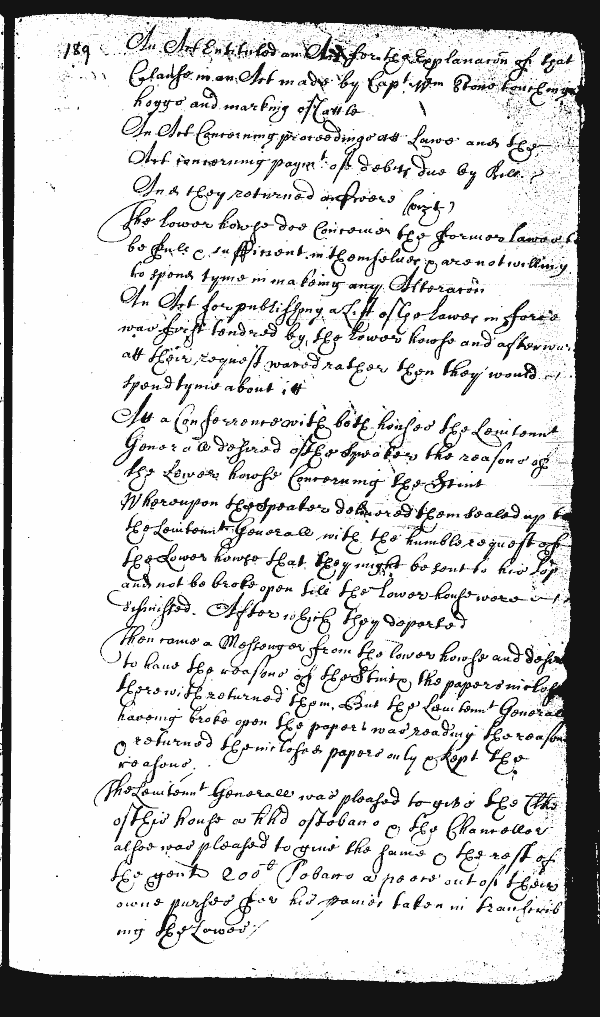 189
An Act Entituled an Act for the Explanacōn of that
Clause in an Act made by Capt Wm Stone touching
hoggs and marking of Cattle
An Act Concerning proceedings att Lawe and the
Act concerning paymt of debts due by Bill
And they returned answere (vizt)
The lower howse doe Conceiue the former lawes to
be full & sufficient in themselues & are not willing
to spend tyme in makeing any Alteracōn
An Act for publishing a List of the lawes in force
was first tendred by the lower howse and afterwa
att their request waved rather then they would
spend tyme about itt
Att a Conferrence with both howses the Leiutennt
Generall desired of the Speaker the reasons of
the Lower howse Concerning the Stint
Whereupon the Speaker delivered them sealed up to
the Leiutennt Generall with the humble request of
the Lower howse that they might be sent to his Lopp
and not be broke open till the lower house were
dismissed. After which they departed
Then came a Messenger from the lower howse and desir
to haue the reasons of the Stint & the papers inclos
therewith returned them, But the Leiutennt Generall
haveing broke open the papers was reading the reasons
& returned the inclosed papers only & kept the
reasons.
The Leiutennt Generall was pleased to give the Clke
of this house a hhd of tobacco & the Chancellor
alsoe was pleased to give the same & the rest of
the gent 200 Tobacco a peece out of their
owne purses for his paines taken in transcrib
ing the Lawes